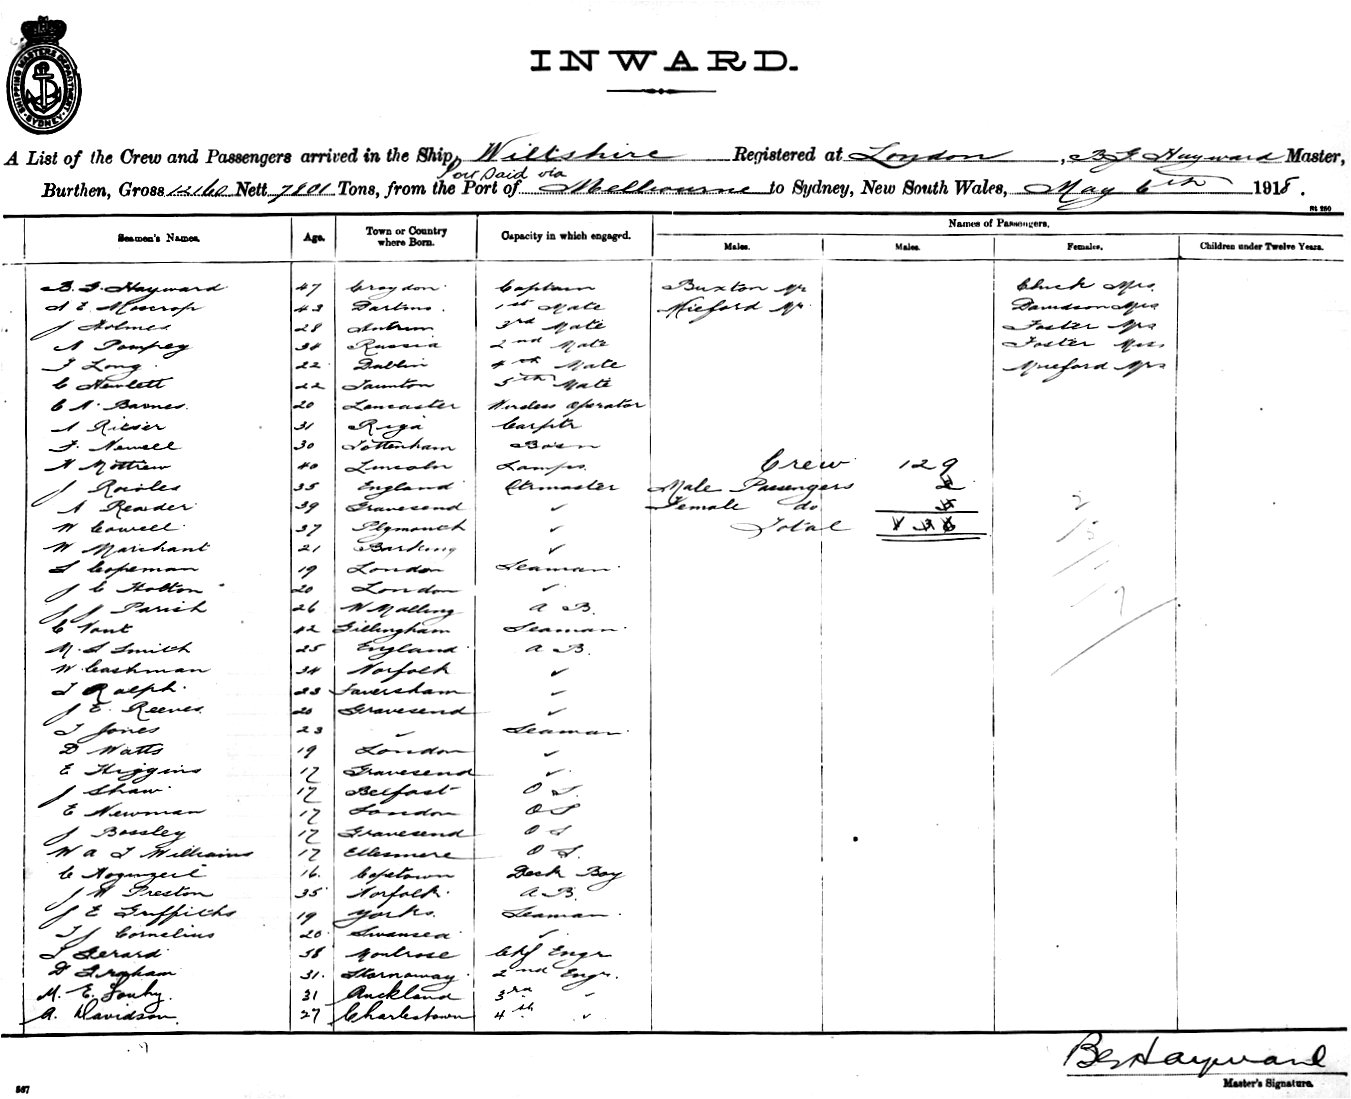 SHIPPING MASTERS DEPARTMENT SYDNEY
INWARD.
A List of the Crew and Passengers arrived in the Ship Wiltshire Registered at London, B G Hayward Master,
Port Said via
Burthen, Gross 12160 Nett 7801 Tons, from the Port of Melbourne to Sydney, New South Wales, May 6th 1918.
Names of Passengers.
Seamen's Names. Age. Town or Country where Born. Capacity in which engaged. Males. Males. Females. Children under Twelve Years.
B. G. Hayward 47 Croydon Captain Buxton Mr Chick Mrs.
A E Moscrop 43 1st Mate Mr. Davidson Mrs
J Holmes 28 Antrim 3rd Mate Foster Mrs
A Pompey 34 Russia 2nd Mate Foster Miss
T Long 22 Dublin 4th Mate Mrs
C Hewlett 22 Taunton 5th Mate
C A. Barnes 20 Lancaster Wireless Operator
A Rieser 31 Riga Carptr
F. Newell 30 Tottenham Bosn
A Mottrew 40 Lincoln Lamps. Crew 129
J Rowles 35 England Qtrmaster Male Passengers 2
A Reader 39 Gravesend ✓ Female do
W Cowell 37 Plymouth ✓ Total
W Marchant 21 Barking ✓
S Copeman 19 London Seaman
J C Holton 20 London ✓
J J Parish 26 W Malling A B.
C Vant 42 Gillingham Seaman
M. S Smith 25 England A B.
W Cashman 34 Norfolk ✓
T Ralph. 23 Faversham ✓
J E. Reeves 20 Gravesend ✓
T Jones 23 ✓ Seaman
D Watts 19 London ✓
E Higgins 17 Gravesend ✓
J Shaw 17 Belfast O S.
E Newman 17 London O S
J Bossley 17 Gravesend O S
W A T Williams 17 Ellesmere O S.
C 16. Capetown Deck Boy
J W Preston 35 Norfolk A B.
J E Griffiths 19 Yorks. Seaman
T J Cornelius 20 Swansea ✓
J Gerard 58 Montrose Chf Engr
D Graham 31. Stornoway 2nd Engr.
M. E. 31 Auckland 3rd ✓
A. Davidson 27 Charlestown 4th ✓
B G Hayward
Master's Signature.
567